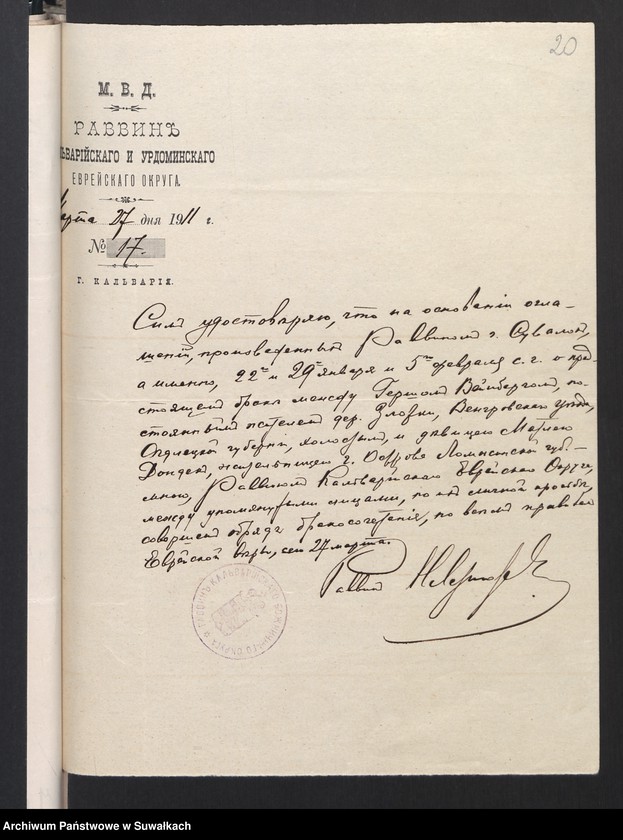 20
М. В. Д.
РАВВИНЪ
ЬВАРІЙСКАГО И УРДОМИНСКАГО
ЕВРЕЙСКАГО ОКРУГА.
Марта 27 дня 1911 г.
№ 17.
Г. КАЛЬВАРІЯ.
Симъ удостоверяю, что на основаніи огла-
шеній, произведенныхъ Раввиномъ г. Сувалокъ,
а именно, 22го и 29го января и 5го февраля с. г. о пред-
стоящемъ браке между Гершомъ Вайнбергомъ, по-
стояннымъ жителемъ дер. Венгровскаго уезда,
Седлецкой губерніи, холостымъ, и девицею
жительницею г. Острова Ломжинской губ.-
мною, Раввиномъ Кальварійскаго Еврейскаго Округа,
между упомянутыми лицами, по ихъ личной просьбе,
совершенъ обрядъ бракосочетанія, по всемъ правиламъ
Еврейской веры, сего 27 марта.
Раввинъ
РАВВИНЪ КАЛЬВАРІЙСКАГО ОКРУГА
Archiwum Państwowe w Suwałkach